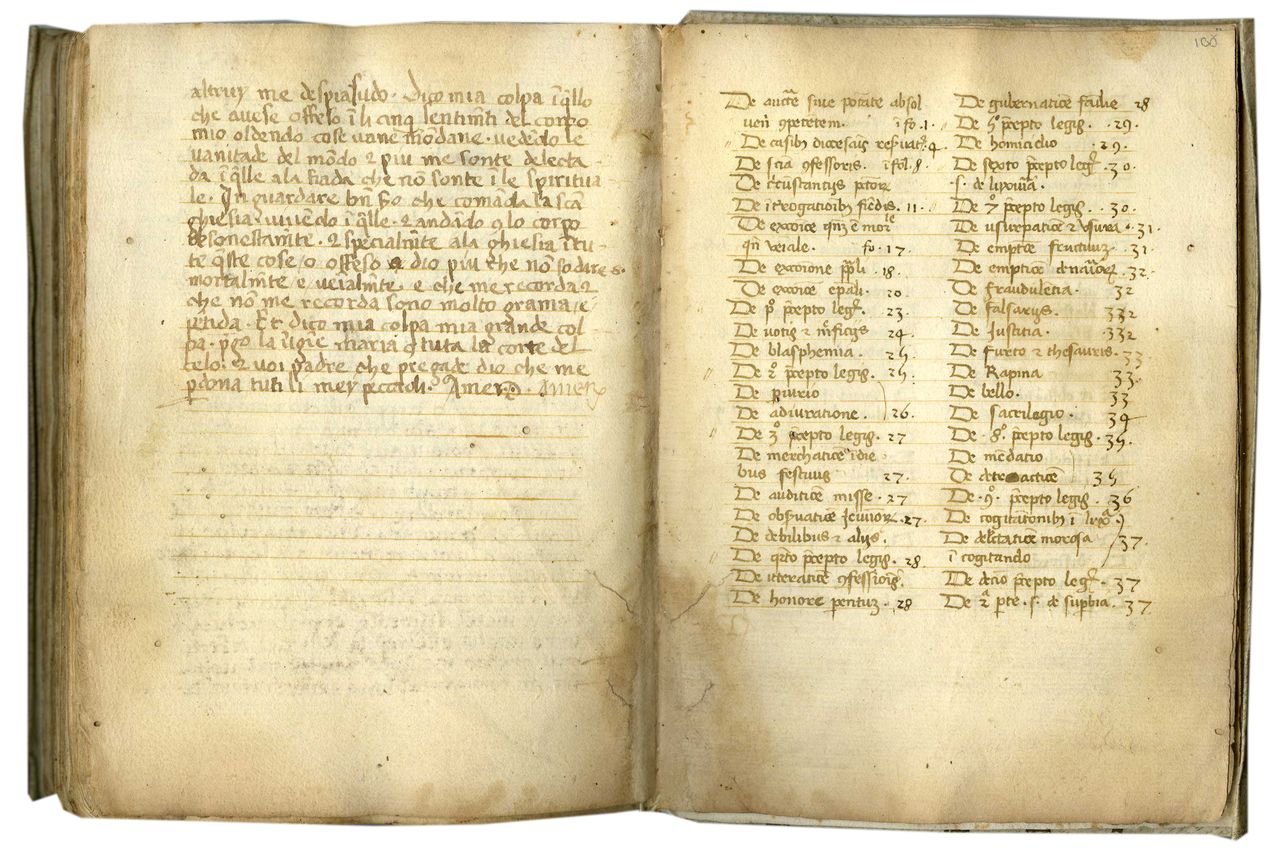 altruy me despiasudo. Dico mia colpa ī q̄llo
che avese offeso ī li cinq sentim̄ti del corpo
mio oldendo cose vane mōdane. vedēdo le
vanitade del mōdo ⁊ piu me sonte delecta
da ī q̄lle a la fiada che nō sonte ī le spiritua
le. In guardare comāda la scā
ghiesia. vivēdo ī q̄lle. ⁊ andādo ꝯ lo corpo
desonestam̄te. ⁊ specialm̄te a la ghiesia ī tu
te q̄ste cose o offeso a dio piu che nō so dire
mortalm̄te e veīalm̄te e che me recorda ⁊
che nō me recorda sono molto grama e
pētida. Et dico mia colpa mia grande col
pa. p̄go la v̄gīe maria ꝯ tuta la corte del
celo. ⁊ voi padre che pregade dio che me
ꝑdona tuti li mey peccadi. Amen. Amen
100
De auct̄e sive potāte absol
ven̄ ꝯpetētem. ī fo. 1.
De casib; diocesaīs res̄vat. 4
De scīa ꝯfessoris. ī fol. 8
De circ̄ustantijs p̄ctor
De īt̄rogatiōib; fiēdis. 11.
De excōice qn̄ ē morᵗᵃˡᵉ
qn̄ veīale. fo. 17.
De excōione pp̄li. 18.
De excōice ep̄ali. 20.
De pº p̄cepto legꝭ. 23.
De votis ⁊ m̄ficijs 24.
De blasphemia. 25.
De 2º p̄cepto legis. 25.
De piurio
De adiuratione. 26.
De 3º p̄cepto legis. 27
De merchatiōe ī die
bus festivis 27.
De auditiōe misse. 27
De obs̄vatiōe Jeiunioꝝ. 27.
De debilibus ⁊ alijs.
De q̄rto p̄cepto legis. 28
De iteratiōe ꝯfessioīs.
De honore parentuꝫ. 28
De gubernatiōe familie 28
De 5º p̄cepto legis. 29.
De homicidio 29.
De sexto p̄cepto legꝭ. 30.
.s. de luxuria.
De 7º p̄cepto legis. 30.
De usurpatiōe ⁊ usura. 31.
De emptiōe fructuuꝫ. 31.
De emptiōe denarioꝝ. 32.
De fraudulētia. 32
De falsarijs. 332
De Justitia. 332
De furto ⁊ thesauris. 33
De Rapina 33.
De bello. 33
De sacrilegio. 34
De .8º. p̄cepto legis. 35.
De mēdatio
De detractiōe 35
De .9º. p̄cepto legis. 36
De cogitationib; ī luxᵃ
De delectatiōe morosa 37.
ī cogitando
De decīo p̄cepto legꝭ. 37
De 2ᵃ pᵗe .s. de supbia. 37